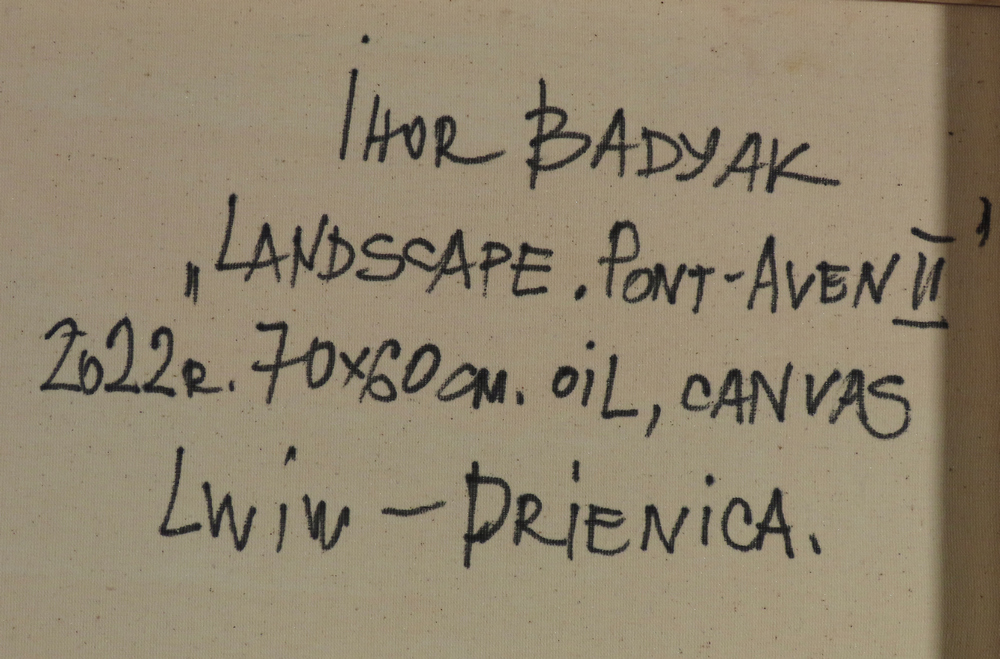 IHOR BADYAK
„LANDSCAPE. PONT-AVEN II”
2022R. 70x60cm. OIL, CANVAS
LWIW – DRIENICA.